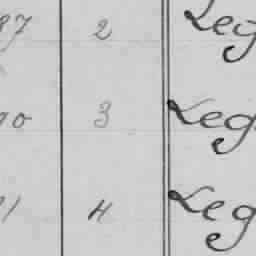 87 2 Leg
90 3 Leg
91 4 Leg